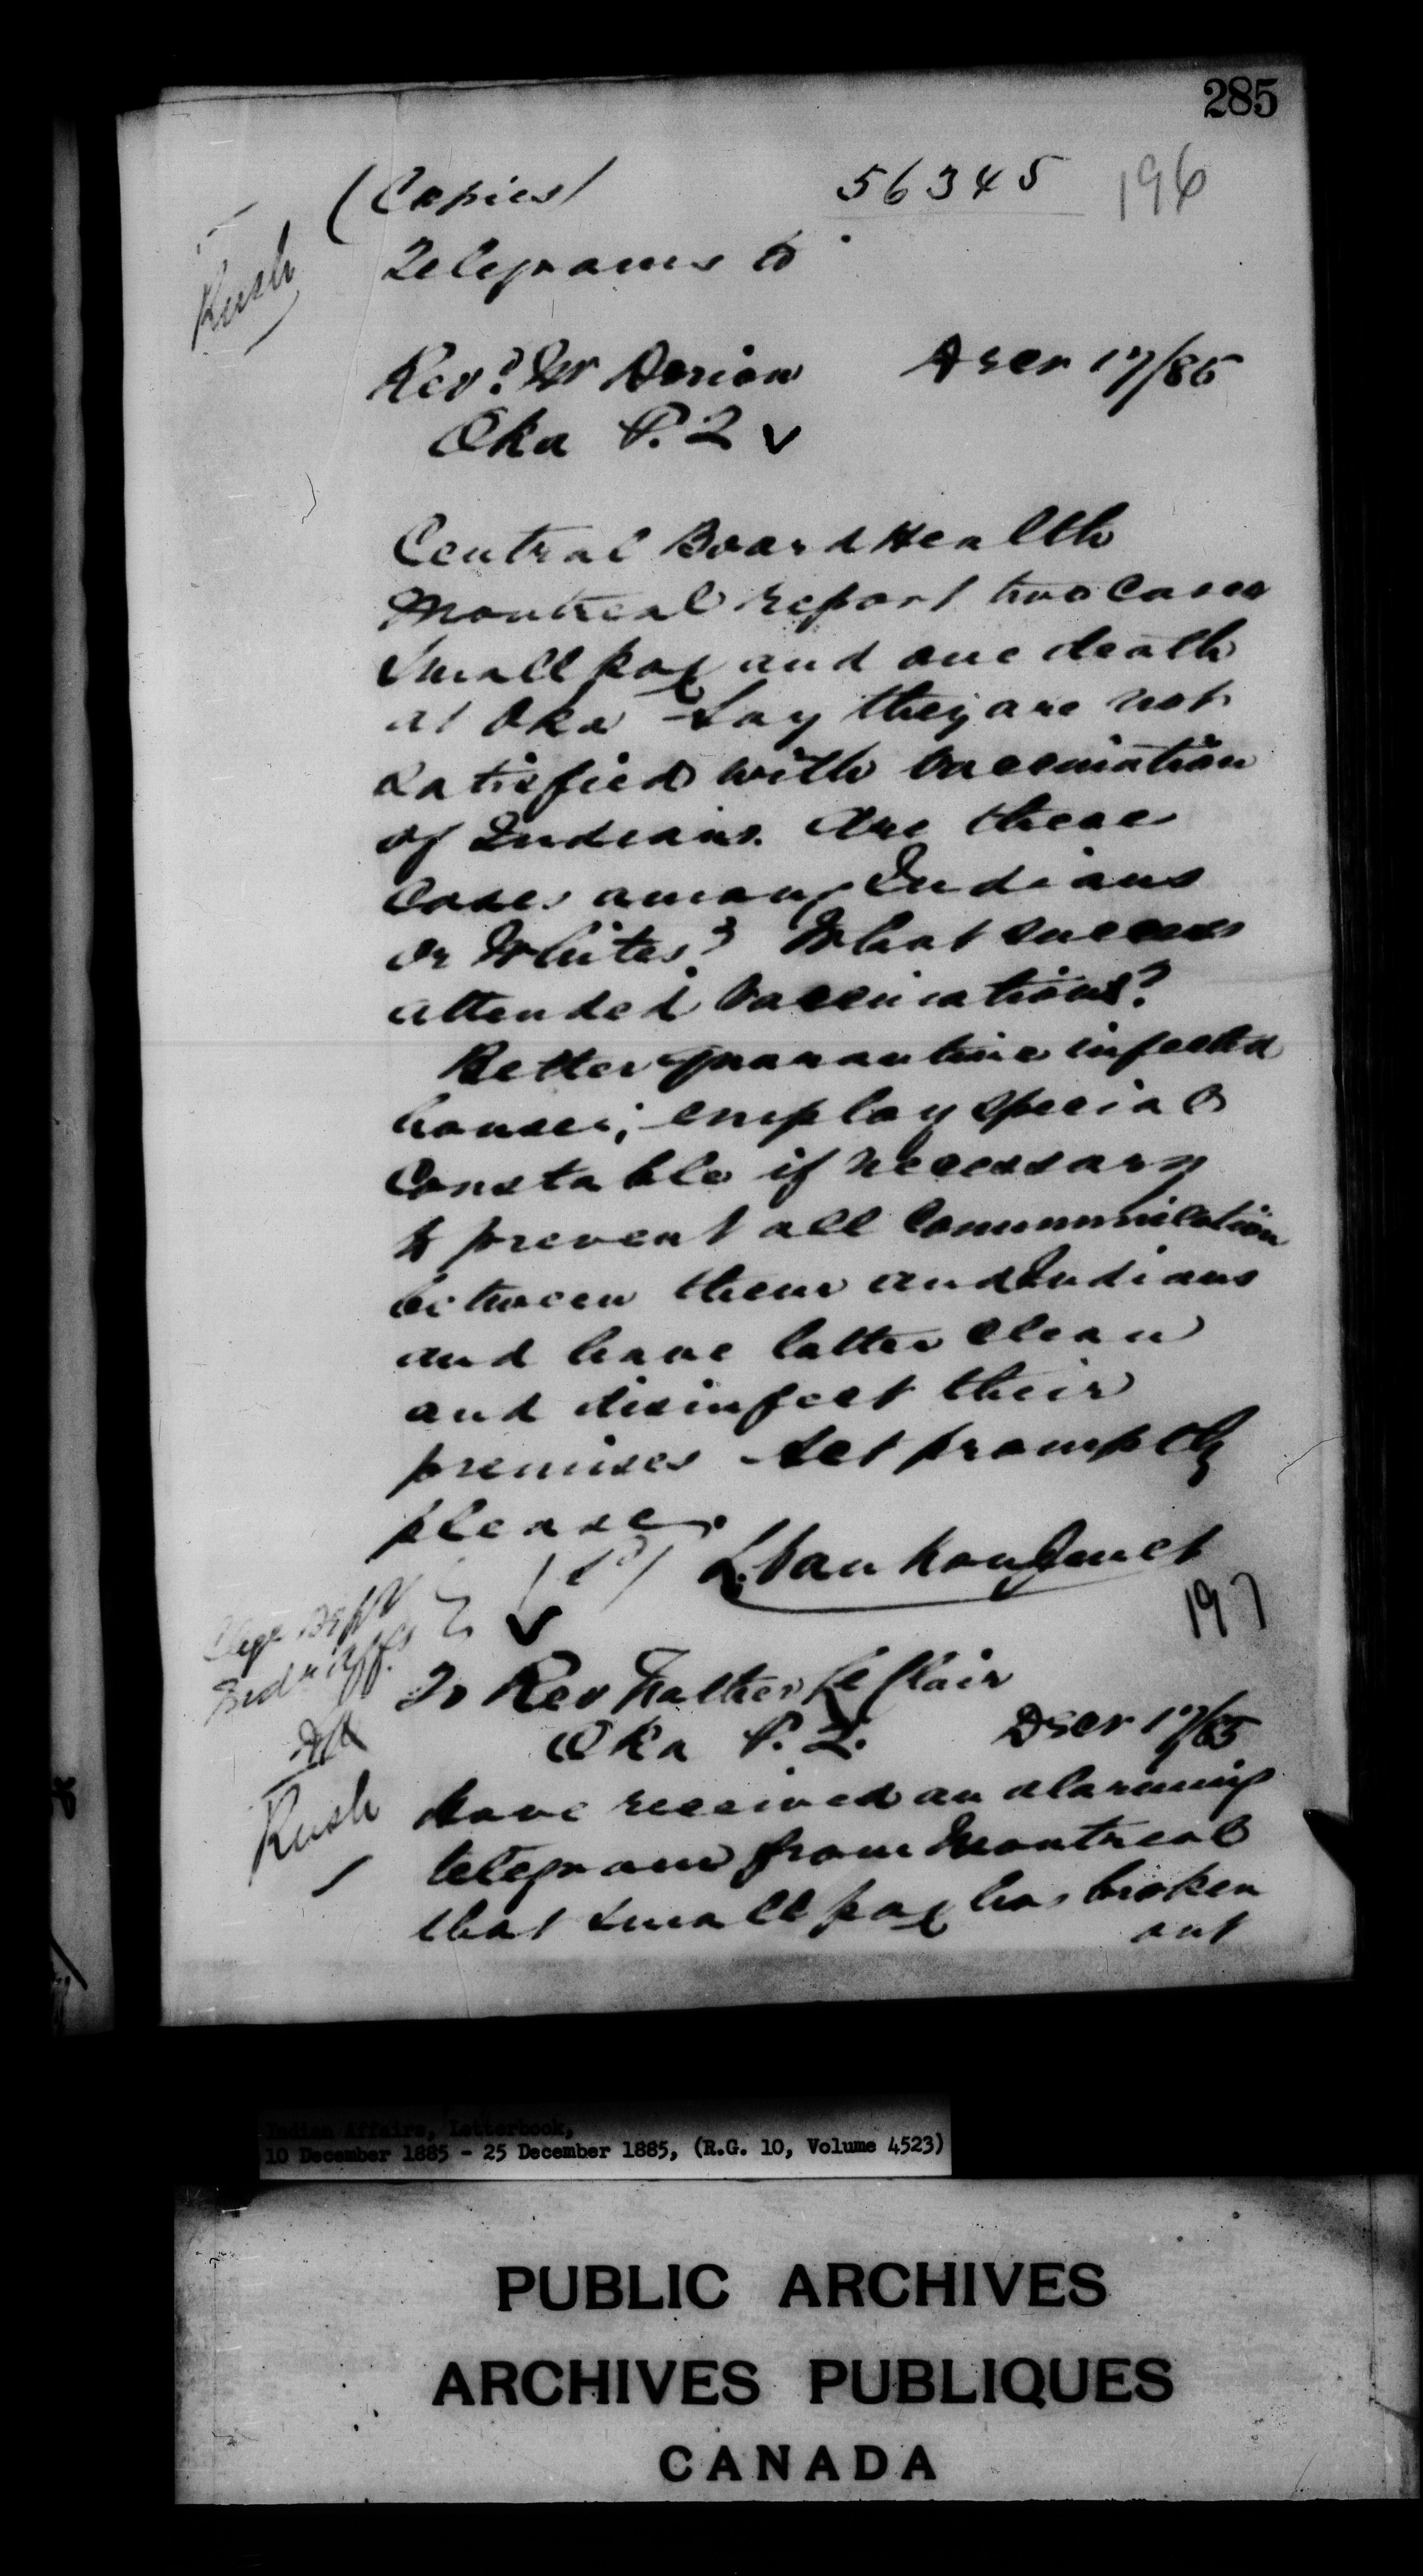 285
(Copies) 56345 196
Rush
Telegrams to
Revd. Mr Dorion Decr 17/85
Oka P. Q
Central Board Health
Montreal report two cases
Small pox and one death
at Oka - Say they are not
satisfied with vaccination
of Indians. Are these
cases among Indians
or Whites? What success
attended vaccinations?
Better quarantine infected
houses; employ special
Constable if necessary
to prevent all communication
between them and Indians
and have latter clean
and disinfect their
premises Act promptly
please.
(sd) L. Vankoughnet
197
Chge Dept
Indn Affs.
Rush
To Rev Father Leclair
Oka P. Q. Decr 17/85
Have received an alarming
telegram from Montreal
that small pox has broken
out
Indian Affairs, Letterbook,
10 December 1885 - 25 December 1885, (R.G. 10, Volume 4523)
PUBLIC ARCHIVES
ARCHIVES PUBLIQUES
CANADA